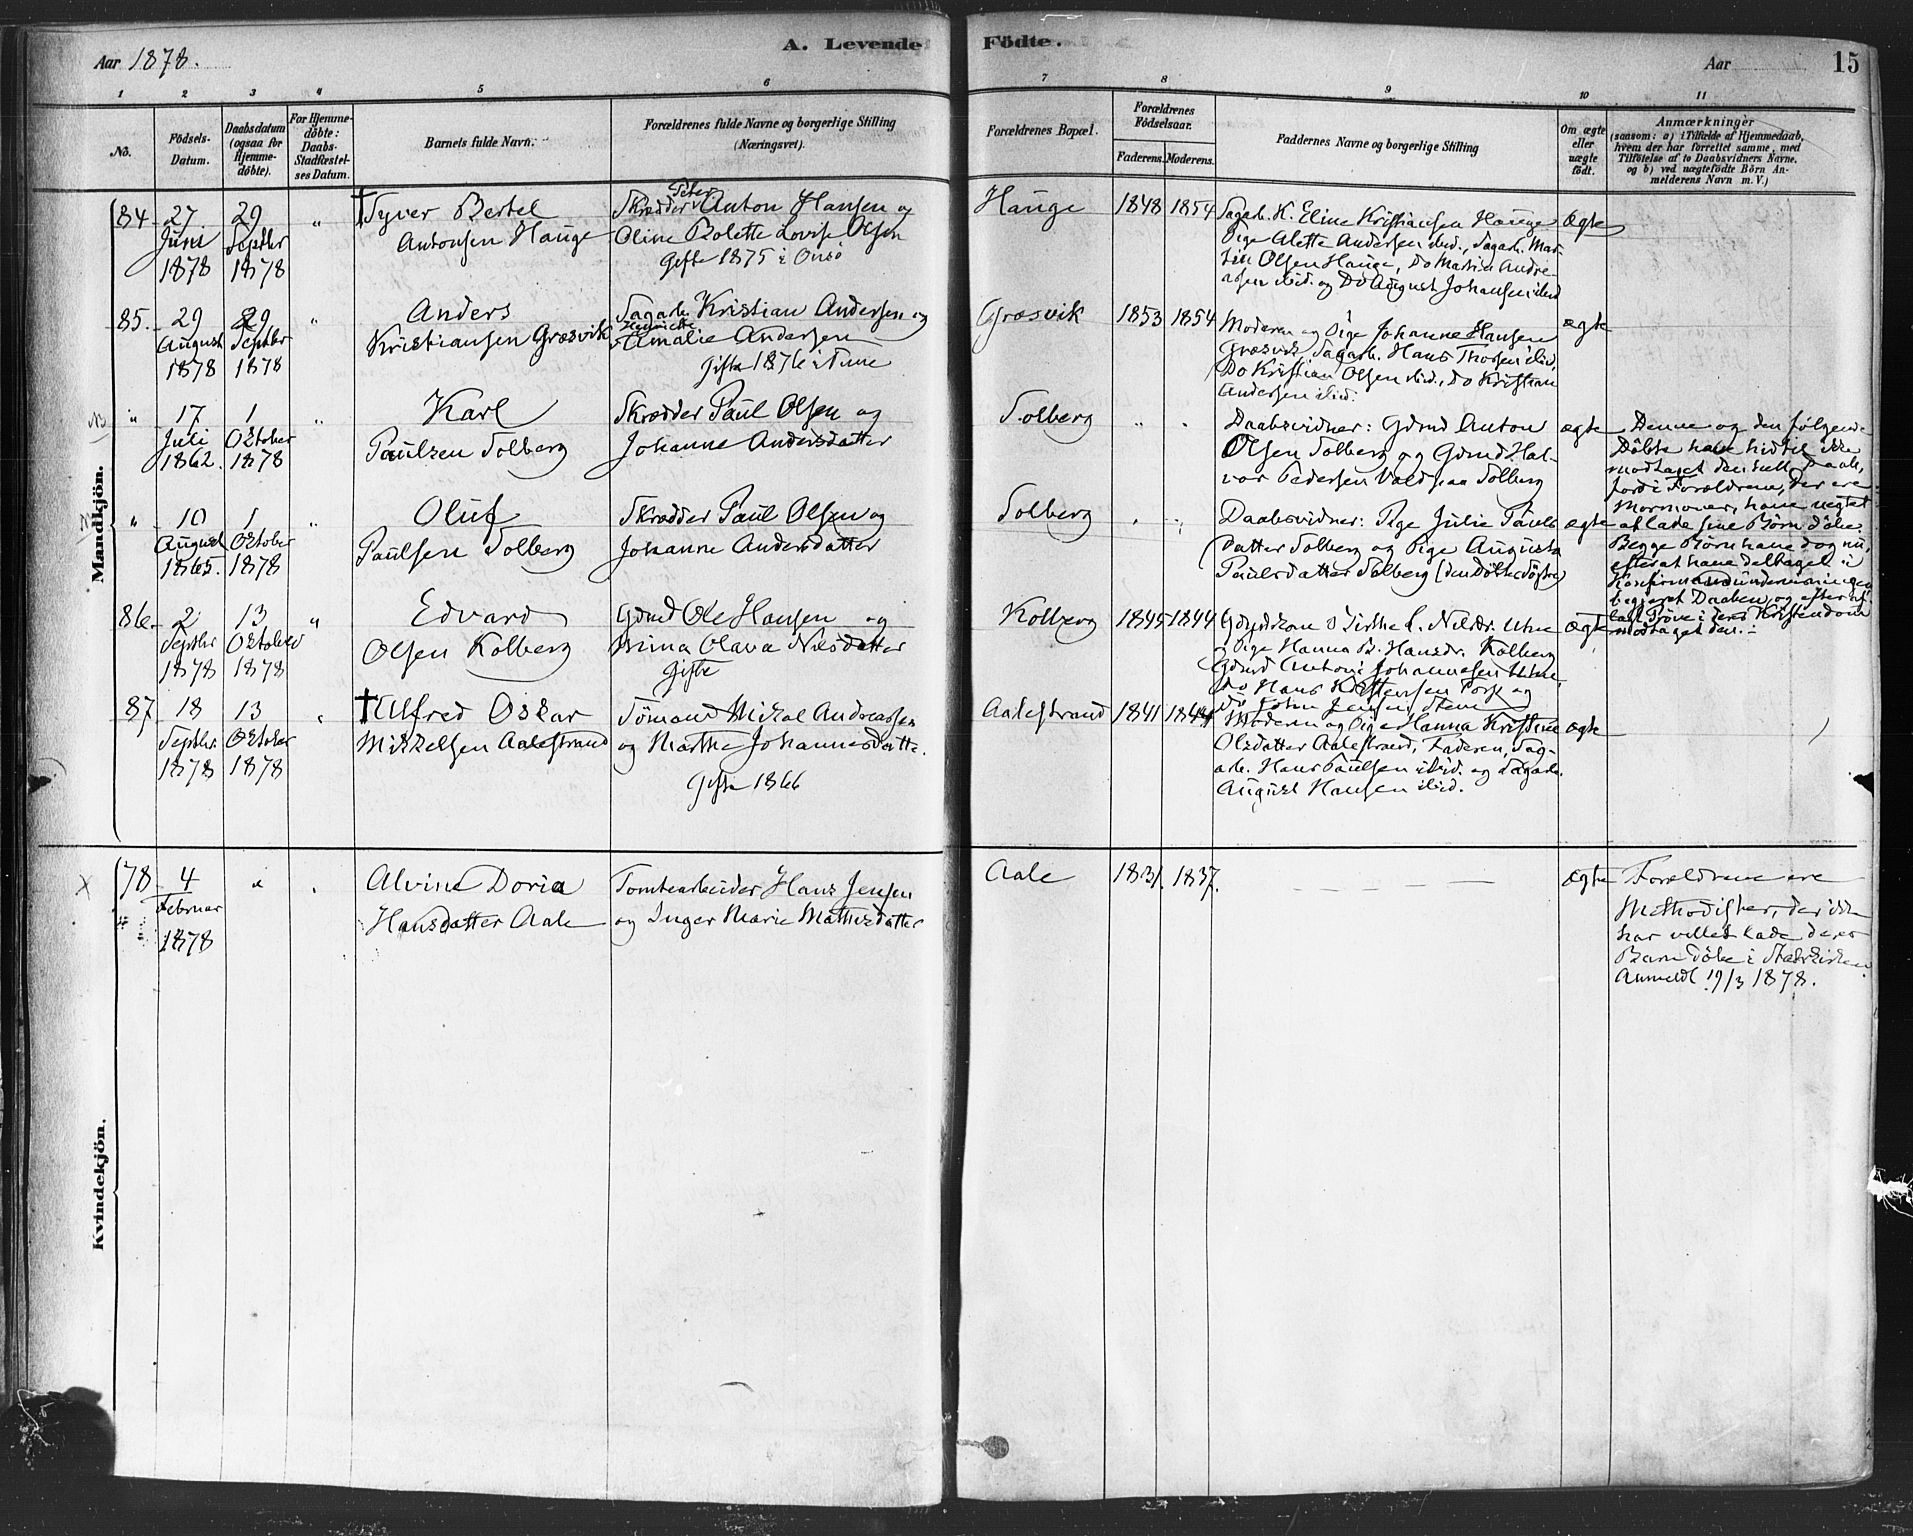 A. Levende Födte.
Aar 1878.
Aar
15
1 2 3 4 5 6 7 8 9 10 11
No.
Födsels-
Datum.
Daabsdatum
(ogsaa for
Hjemme-
döbte).
For Hjemme-
döbte:
Daabs-
Stadfæstel-
ses Datum.
Barnets fulde Navn.
Forældrenes fulde Navne og borgerlige Stilling
(Næringsvei).
Forældrenes Bopæl.
Forældrenes
Födselsaar.
Faderens. Moderens.
Faddernes Navne og borgerlige Stilling
Om ægte
eller
uægte
födt.
Anmærkninger
(saasom: a) i Tilfælde af Hjemmedaab,
hvem der har forrettet samme, med
Tilföielse af to Daabsvidners Navne.
og b) ved uægtefödte Börn An-
melderens Navn m. V.)
Mandkjön.
84.
27
Juni
1878
29
Septbr
1878
"
† Syver Bertel
Antonsen Hauge
Peter
Skrædder Anton Hansen og
Oline Bolette Lovise Olsen
Gifte 1875 i Onsö
Hauge
1848 1854
Sagarb. K. Eline Kristiansen Hauge
Pige Alette Andersen ibid., Sagarb. Mar-
tin Olsen Hauge, Do Martin Andre-
asen ibid. og Do August Johansen ibid
Ægte
85.
29
August
1878
29
Septbr
1878
"
Anders
Kristiansen Græsvik
Sagarb. Kristian Andersen og
Henriette
Amalie Andersen
Gifte 1876 i Tune
Græsvik
1853 1854
Moderen og Pige Johanne Hansen
Græsvik, Sagarb. Hans Thorsen ibid,
Do Kristian Olsen ibid., Do Kristian
Andersen ibid.
ægte
"
17
Juli
1862.
1
Oktober
1878
"
Karl
Paulsen Solberg
Skrædder Paul Olsen og
Johanne Andersdatter
Solberg
" "
Daabsvidner: Gdmd Anton
Olsen Solberg og Gdmd Hal-
vor Pedersen Vold paa Solberg
ægte
Denne og den fölgende
Döbte have hidtil ikke
modtaget den hell. Daab,
fordi Forældrene, der ere
Mormoner, have negtet
at lade sine Börn döbe.
Begge Börn have dog nu,
efterat have deltaget i
Konfirmandundervisningen
begjæret Daaben og efter at
lagt Pröve i deres Kristendom
modtaget den.
"
10
August
1865.
1
Oktober
1878
"
Oluf
Paulsen Solberg
Skrædder Paul Olsen og
Johanne Andersdatter
Solberg
" "
Daabsvidner: Pige Julie Pauls
datter Solberg og Pige Augusta
Paulsdatter Solberg (den Döbtes Söstre)
ægte
86.
2
Septbr
1878
13
Oktober
1878
"
Edvard
Olsen Kolberg
Gdmd Ole Hansen og
Mina Olava Nilsdatter
Gifte
Kolberg
1845 1844
Pige Hanna B. Hansdr. Kolberg
Gdmd Anton Johannesen Utne,
Do Hans Kristensen Torp og
Do John Jensen Stene
ægte
87
18
Septbr.
1878
13
Oktober
1878
"
† Alfred Oskar
Mikkelsen Aalestrand
Sömand Mikal Andreassen
og Marthe Johannesdatter.
Gifte 1866
Aalestrand
1841 1844
Moderen og Pige Hanna Kristine
Olsdatter Aalestrand, Faderen, Sag-
arb. Hans Paulsen ibid. og Sagarb.
August Hansen ibid.
ægte
Kvindekjön.
78
4
Februar
1878
"
Alvine Doria
Hansdatter Aale
Tomtearbeider Hans Jensen
og Inger Marie Mathisdatter
Aale
1831. 1837.
ægte
Forældrene ere
Methodister, der ikke
har villet lade deres
Barn döbe i Statskirken.
Anmeldt 19/3 1878.